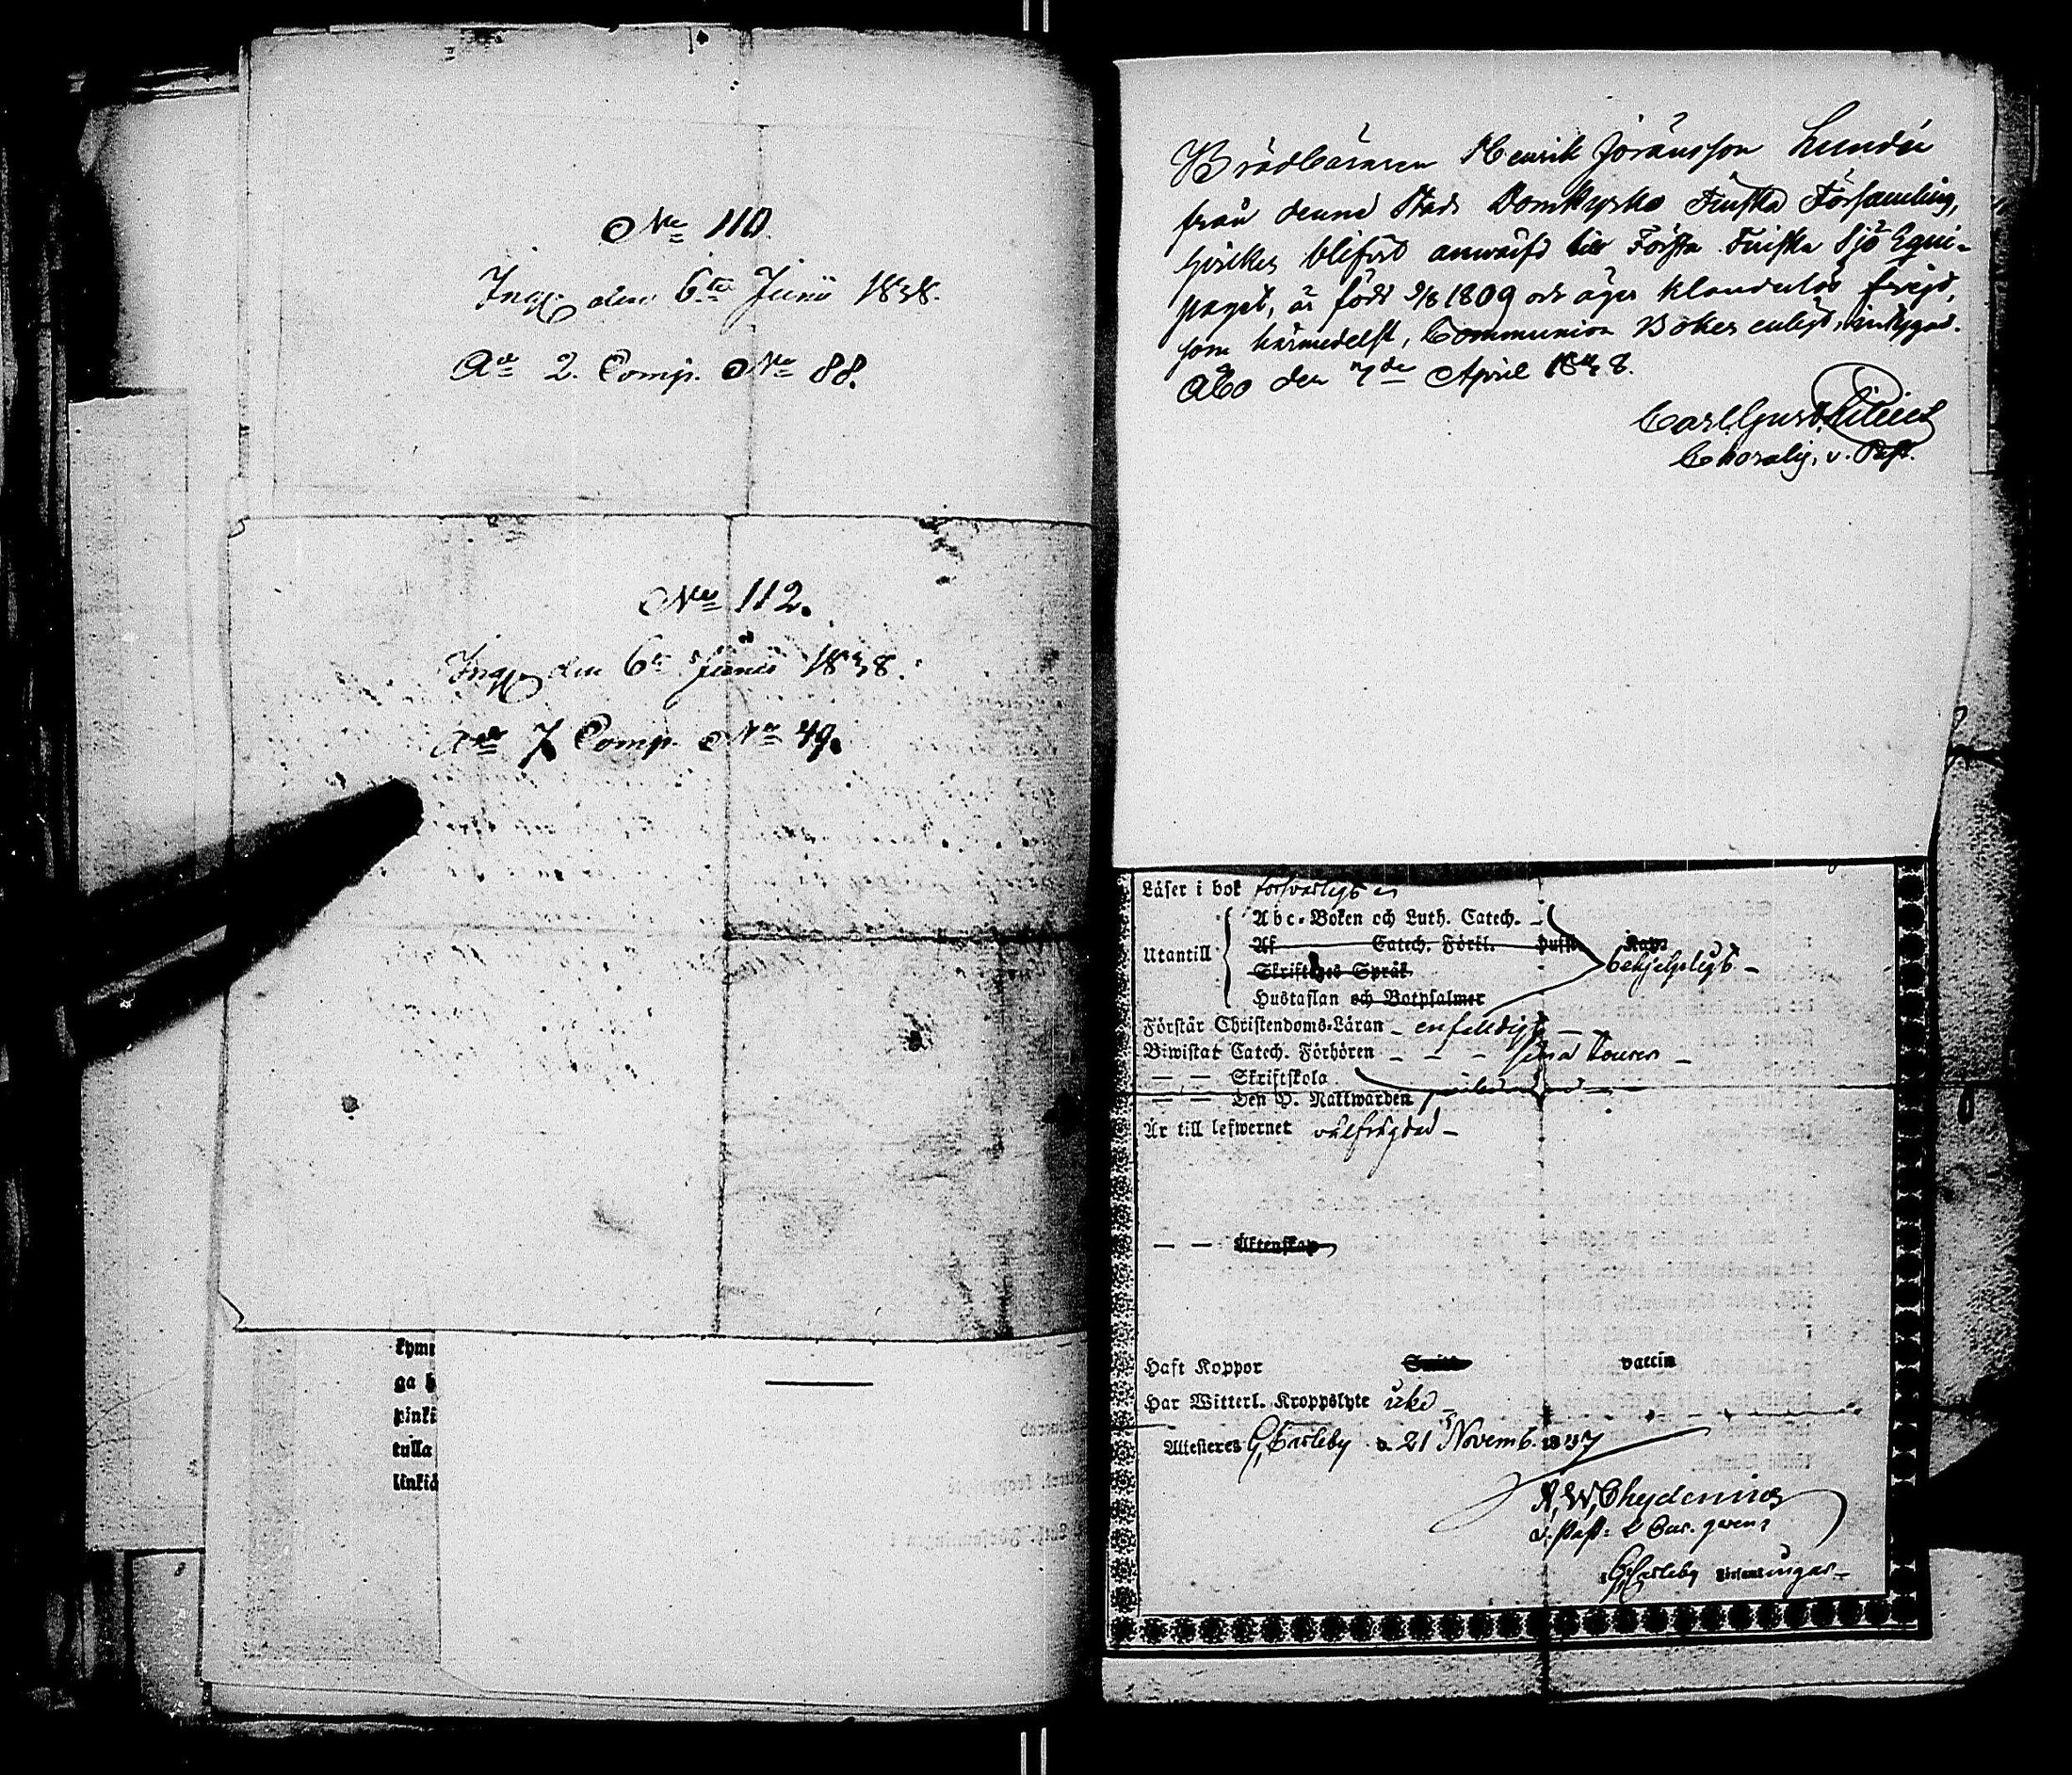 No 110
Ing. den 6te Junii 1838.
Att 2. Comp. No 88.
No 112.
Ing. den 6te Junii 1838.
Att 7 Comp. No 49.
kym
ga
pinki
tulla
linkid
Brödbäraren Henrik Joransson Lundén
från denna Stads Domkyrko Finska Församling,
hvilken blifvit anwist till Första Finska Sjö Equi-
paget, är född 9/8 1809 och äger klanderlös frejd,
som härmedelst, Communion Boken enligt, intygas.
Åbo den 7de April 1838.
Carl Gust.
v. Past.
Läser i bok försvarligt
Abc-Boken och Luth. Catech.
Utantill Af Catech. Förkl. Hufst. Kap:
behjelpligt
Skriftenes Språk
Hustaflan och Botpsalmer
Förstår Christendoms-Läran enfaldigt
Biwistat Catech. Förhören
Skriftskola
Den H. Nattwarden
Är till lefwernet välfrägdad
Äktenskap
Haft Koppor vaccin
Har Witterl. Kroppslyte icke
Attesteres G. Carleby d. 21 Novemb. 1837
A. W. Chydenius
v. Past:
G. Carleby